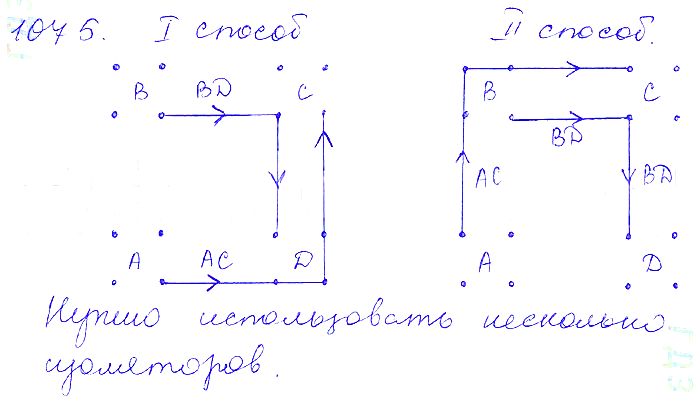 1075. I способ II способ.
B BD C B C
BD
AC BD
A AC D A D
Нужно использовать несколько
изометоров.